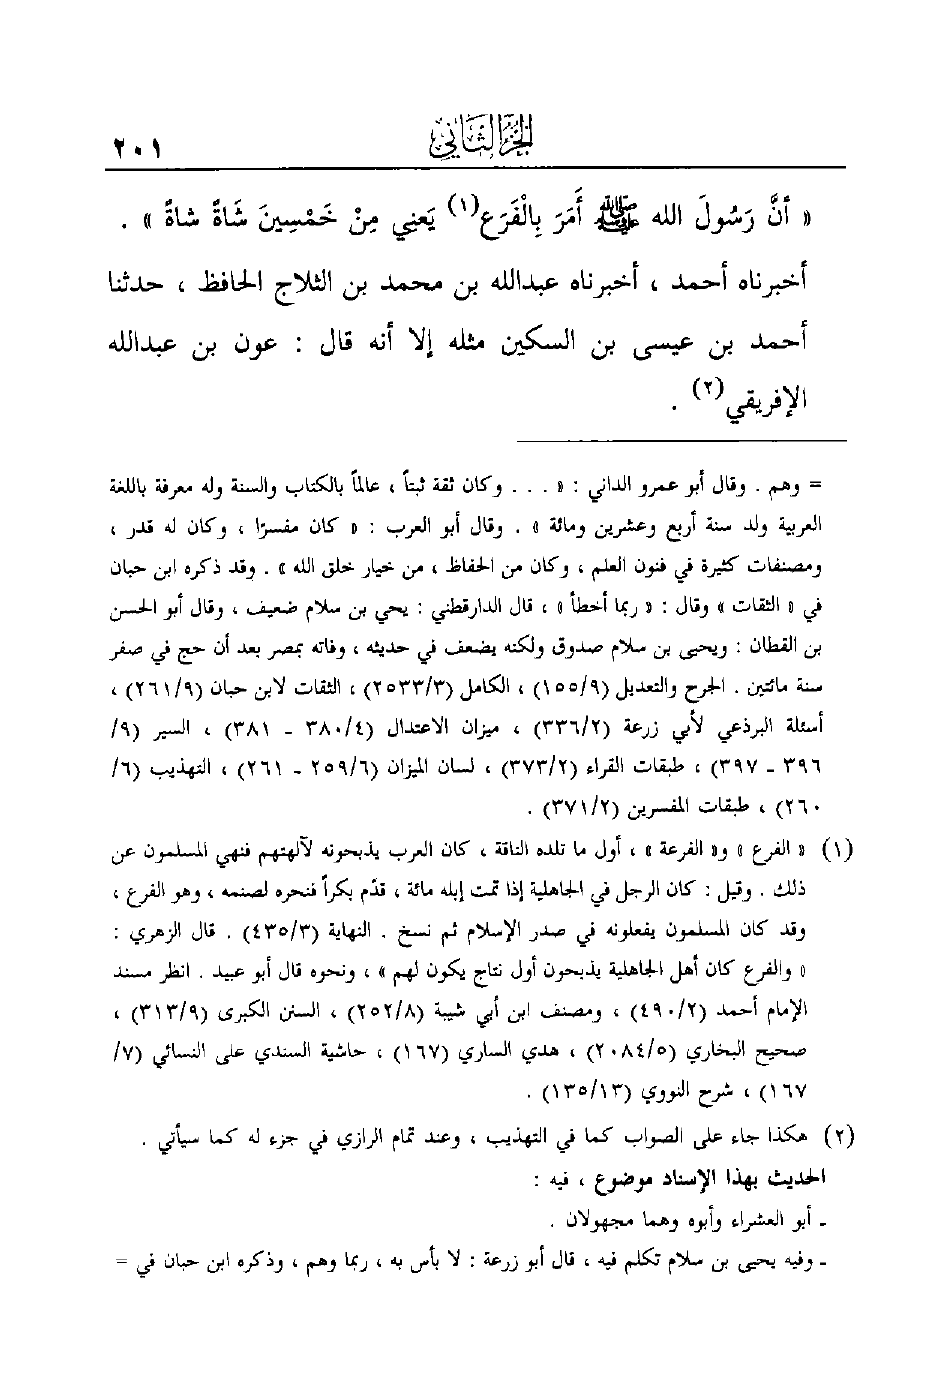 الجزء الثاني
٢٠١
« أنَّ رَسُولَ الله ﷺ أَمَرَ بِالْفَرَعِ(١) يَعني مِنْ خَمْسِينَ شَاةً شاةً » .
أخبرناه أحمد ، أخبرناه عبدالله بن محمد بن الثلاج الحافظ ، حدثنا
أحمد بن عيسى بن السكين مثله إلا أنه قال : عون بن عبدالله
الإفريقي(٢) .
= وهم . وقال أبو عمرو الداني : « . . . وكان ثقة ثبتاً ، عالماً بالكتاب والسنة وله معرفة باللغة
العربية ولد سنة أربع وعشرين ومائة » . وقال أبو العرب : « كان مفسرًا ، وكان له قدر ،
ومصنفات كثيرة في فنون العلم ، وكان من الحفاظ ، من خيار خلق الله » . وقد ذكره ابن حبان
في « الثقات » وقال : « ربما أخطأ » ، قال الدارقطني : يحي بن سلام ضعيف ، وقال أبو الحسن
بن القطان : ويحيى بن سلام صدوق ولكنه يضعف في حديثه ، وفاته بمصر بعد أن حج في صفر
سنة مائتين . الجرح والتعديل (١٥٥/٩) ، الكامل (٢٥٣٣/٣) ، الثقات لابن حبان (٢٦١/٩) ،
أسئلة البرذعي لأبي زرعة (٣٣٦/٢) ، ميزان الاعتدال (٣٨٠/٤ - ٣٨١) ، السير (٩/
٣٩٦ - ٣٩٧) ، طبقات القراء (٣٧٣/٢) ، لسان الميزان (٢٥٩/٦ - ٢٦١) ، التهذيب (٦/
٢٦٠) ، طبقات المفسرين (٣٧١/٢) .
(١) « الفرع » و« الفرعة » ، أول ما تلده الناقة ، كان العرب يذبحونه لآلهتهم فنهي المسلمون عن
ذلك . وقيل : كان الرجل في الجاهلية إذا تمت إبله مائة ، قدّم بكراً فنحره لصنمه ، وهو الفرع ،
وقد كان المسلمون يفعلونه في صدر الإسلام ثم نسخ . النهاية (٤٣٥/٣) . قال الزهري :
« والفرع كان أهل الجاهلية يذبحون أول نتاج يكون لهم » ، ونحوه قال أبو عبيد . انظر مسند
الإمام أحمد (٤٩٠/٢) ، ومصنف ابن أبي شيبة (٢٥٢/٨) ، السنن الكبرى (٣١٣/٩) ،
صحيح البخاري (٢٠٨٤/٥) ، هدي الساري (١٦٧) ، حاشية السندي على النسائي (٧/
١٦٧) ، شرح النووي (١٣٥/١٣) .
(٢) هكذا جاء على الصواب كما في التهذيب ، وعند تمام الرازي في جزء له كما سيأتي .
الحديث بهذا الإسناد موضوع ، فيه :
- أبو العشراء وأبوه وهما مجهولان .
- وفيه يحيى بن سلام تكلم فيه ، قال أبو زرعة : لا بأس به ، ربما وهم ، وذكره ابن حبان في =